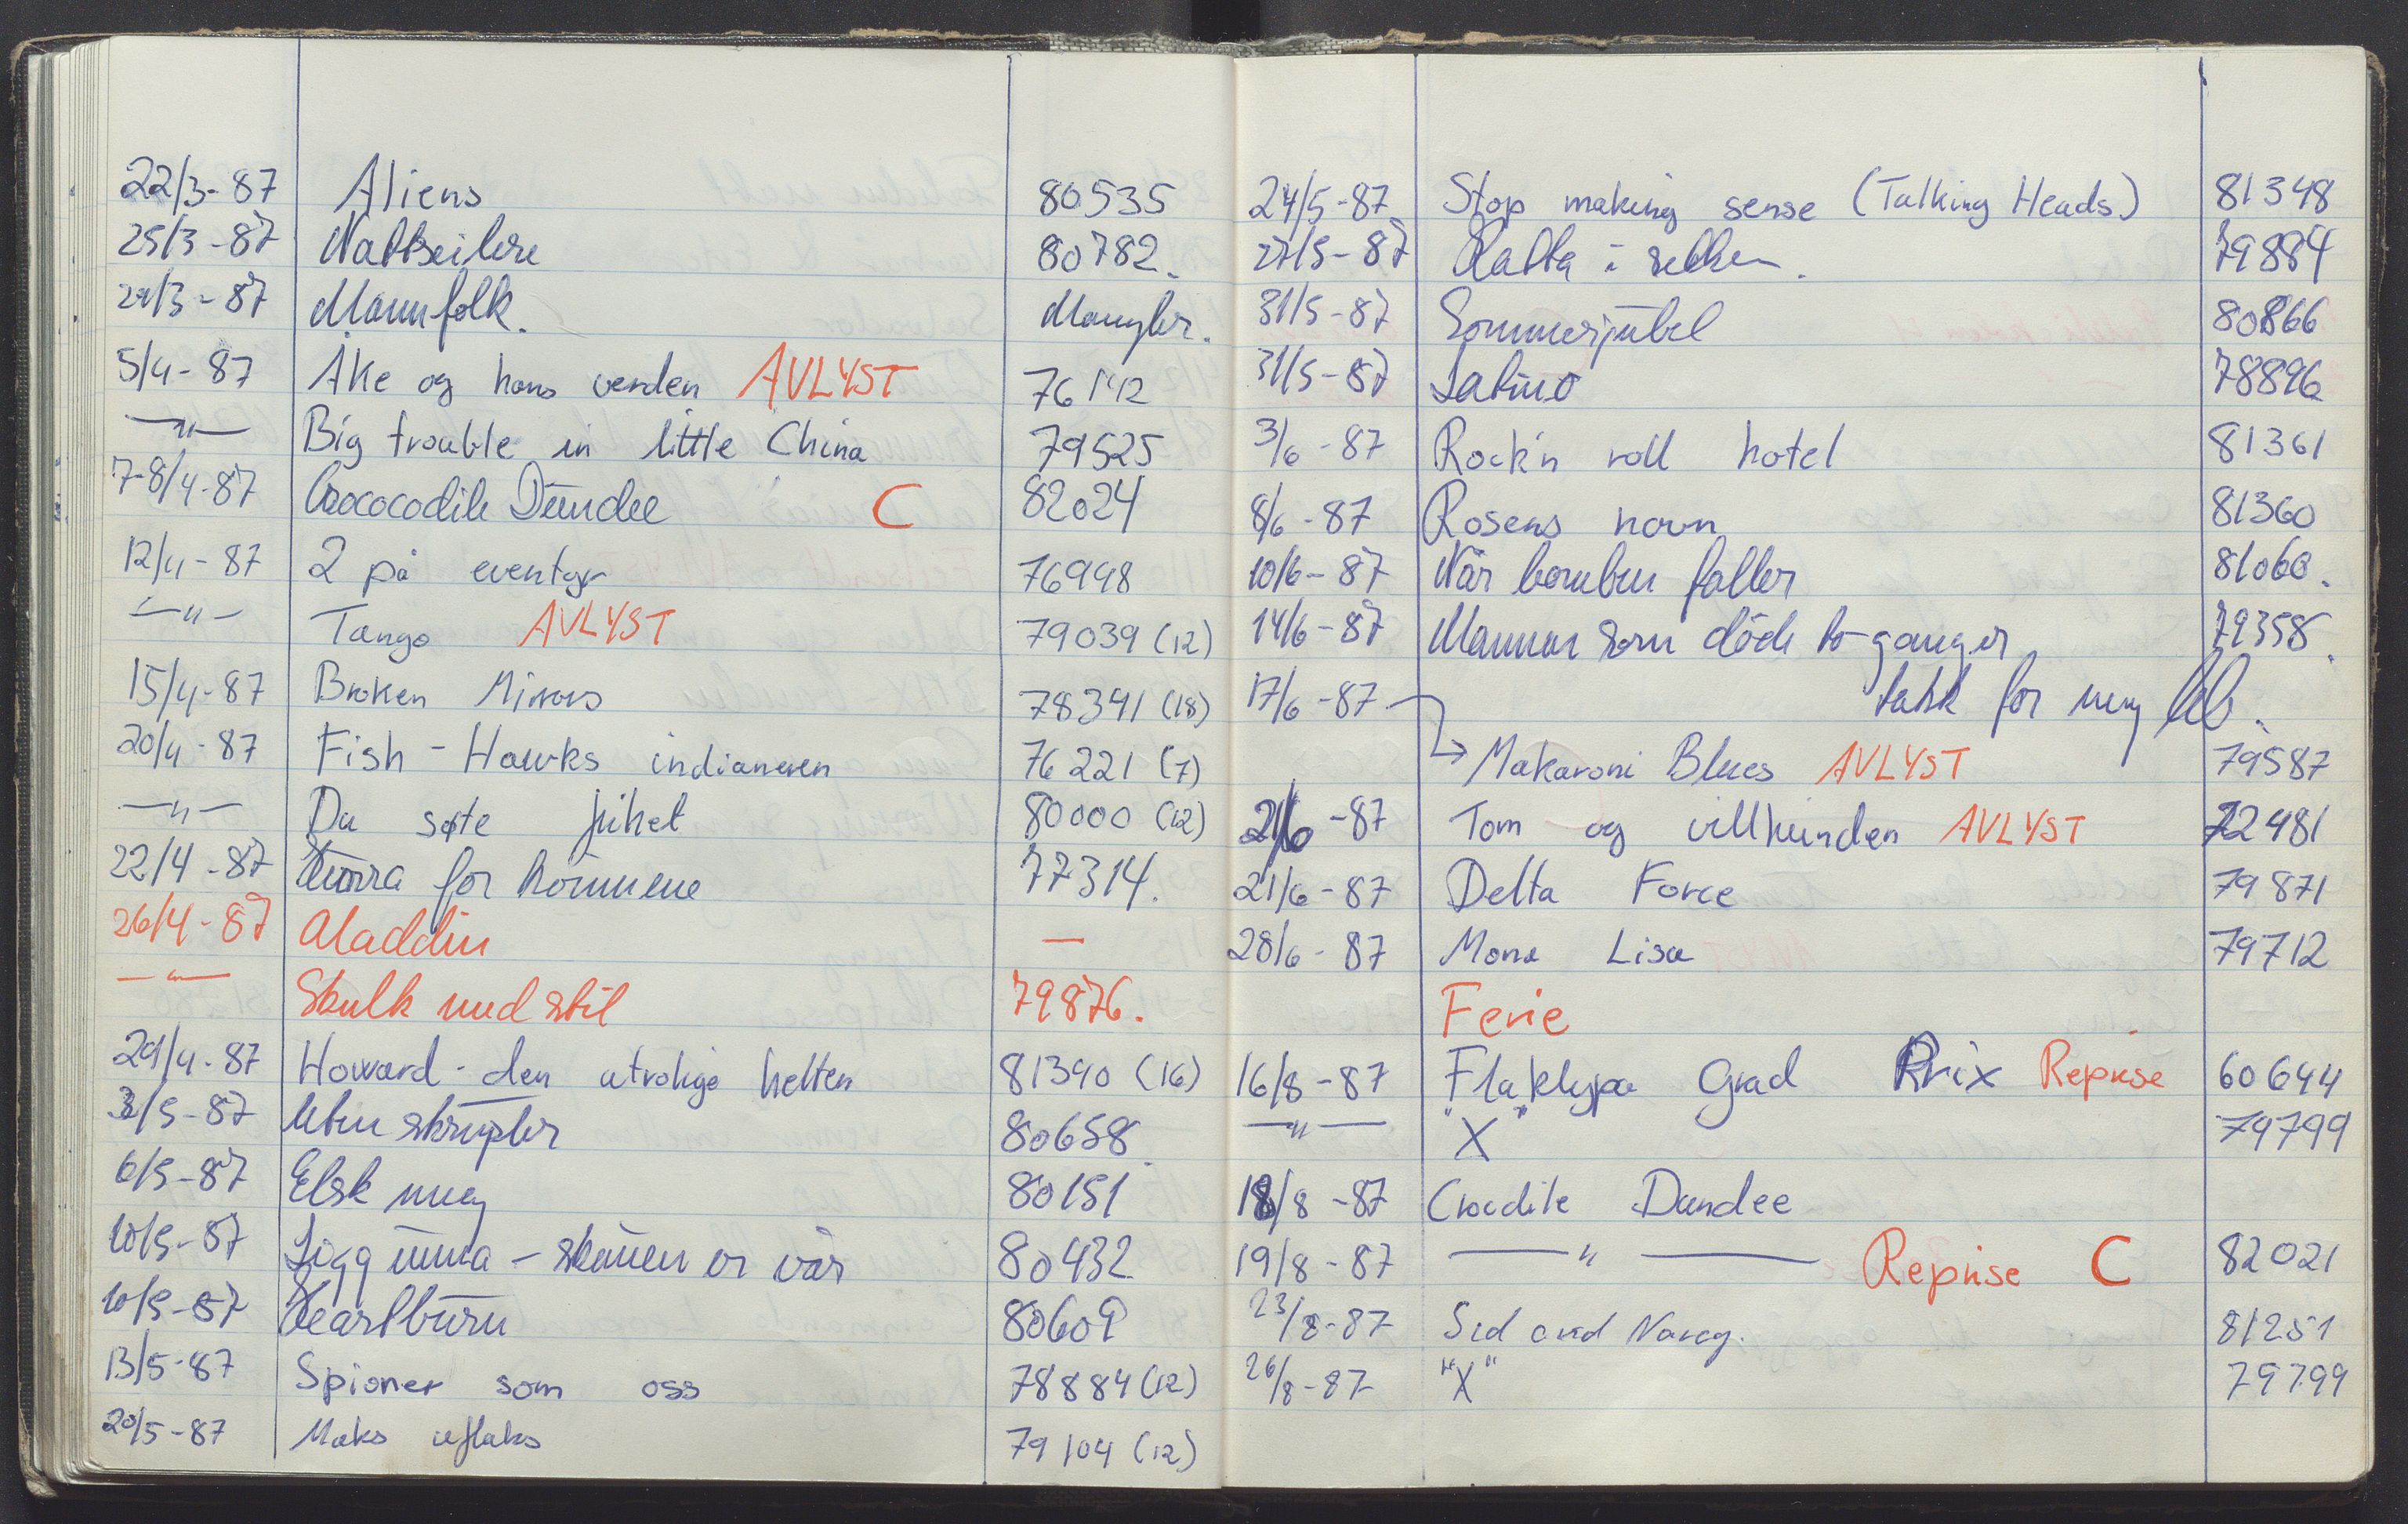 22/3-87 Aliens 80535
25/3-87 Nattseilere 80782.
29/3-87 Mannfolk. Mangler.
5/4-87 Åke og hans verden AVLYST 76142
—"— Big trouble in little China 79525
7-8/4-87 Crococodile Dundee C 82024
12/4-87 2 på eventyr 76948
—"— Tango AVLYST 79039 (12)
15/4-87 Broken Mirrors 78341 (18)
20/4-87 Fish-Hawks indianeren 76221 (7)
—"— Du søte juhet 80000 (12)
22/4-87 Hurra for hommene 77314.
26/4-87 Aladdin —
—"— Skulk med stil 79876.
29/4-87 Howard - den utrolige helten 81390 (16)
3/5-87 Uten skrupler 80658.
6/5-87 Elsk meg 80151
10/5-87 Ligg unna - skauen er vår 80432
10/5-87 Heartburn 80609
13/5-87 Spioner som oss 78884 (12)
20/5-87 Maks uflaks 79104 (12)
24/5-87 Stop making sense (Talking Heads) 81348
27/5-87 Katta i sekken. 79884
31/5-87 Sommerjubel 80866
31/5-87 Latino 78896
3/6-87 Rock'n roll hotel 81361
8/6-87 Rosens navn 81360
10/6-87 Når bomben faller 81060.
14/6-87 Mannen som døde to ganger 79358.
takk for meg
17/6-87 → Makaroni Blues AVLYST 79587
21/6-87 Tom og villhunden AVLYST 72481
21/6-87 Delta Force 79871
28/6-87 Mona Lisa 79712
Ferie
16/8-87 Flaklypa Grad Prix Reprise 60644
—"— "X" 79799
18/8-87 Crocdile Dundee
19/8-87 —"— Reprise C 82021
23/8-87 Sid and Nancy. 81251
26/8-87 "X" 79799